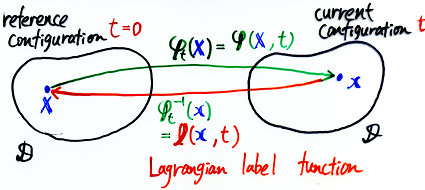 reference
configuration t=0
current
configuration t
φₜ(X) = φ(X, t)
X
x
φₜ⁻¹(x)
= l(x, t)
𝒟
𝒟
Lagrangian label function